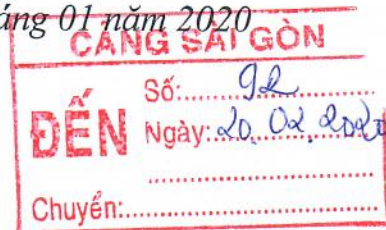 áng 01 năm 2020
CẢNG SÀI GÒN
ĐẾN
Số: 92
Ngày: 20. 02. 2020
Chuyển: